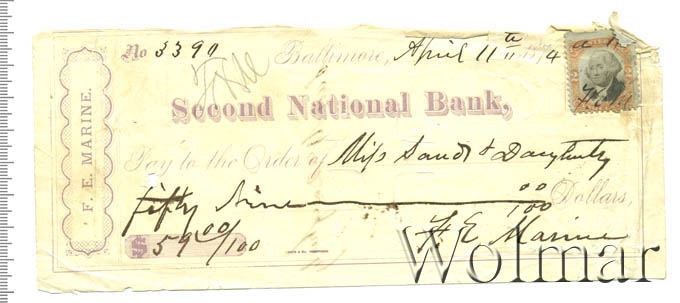 No 3390 Baltimore, April 11th 1874
Second National Bank,
Pay to the Order of Miss Sands & Daugherty
fifty Nine 00/100 Dollars,
$ 59 00/100 F. E. Marine
F. E. MARINE.
Wolmar